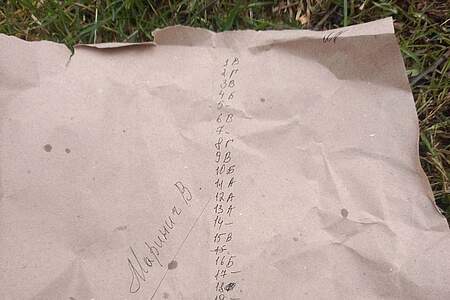 1 В
2 Г
3 В
4 Б
5 –
6 В
7 –
8 Г
9 В
10 Б
11 А
12 А
13 А
14 –
15 В
15
16 Б
17 –
18
19 –
Маринич В.